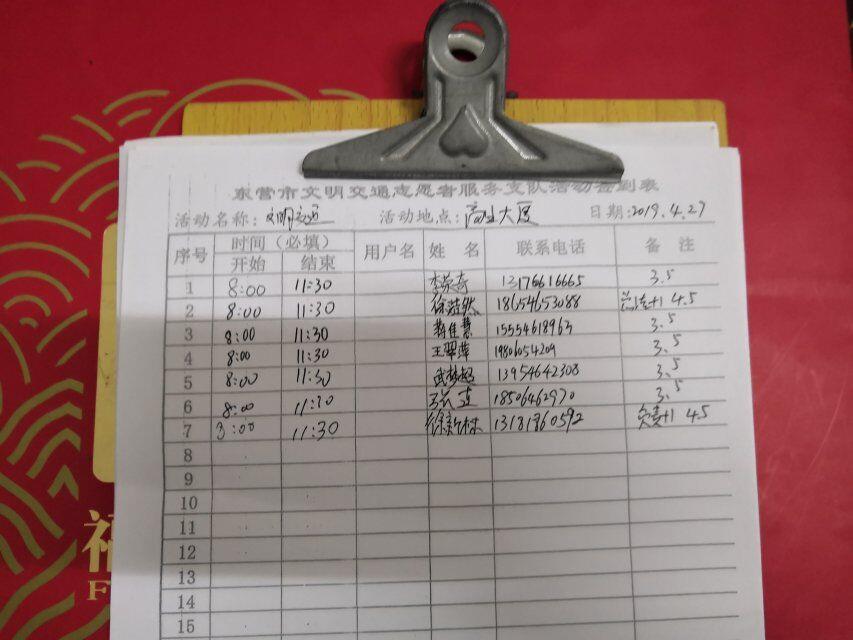 东营市文明交通志愿者服务支队活动签到表
活动名称: 文明交通 活动地点: 大厦 日期: 2019.4.27
序号 时间（必填） 用户名 姓 名 联系电话 备 注
开始 结束
1 8:00 11:30 13176616665 3.5
2 8:00 11:30 徐浩然 18654653088 +1 4.5
3 8:00 11:30 15554618963 3.5
4 8:00 11:30 王翠萍 19806054209 3.5
5 8:00 11:30 武梦超 13954642308 3.5
6 8:00 11:30 18506462970 3.5
7 8:00 11:30 徐新林 13181860592 负责+1 4.5
8
9
10
11
12
13
14
15
福
F